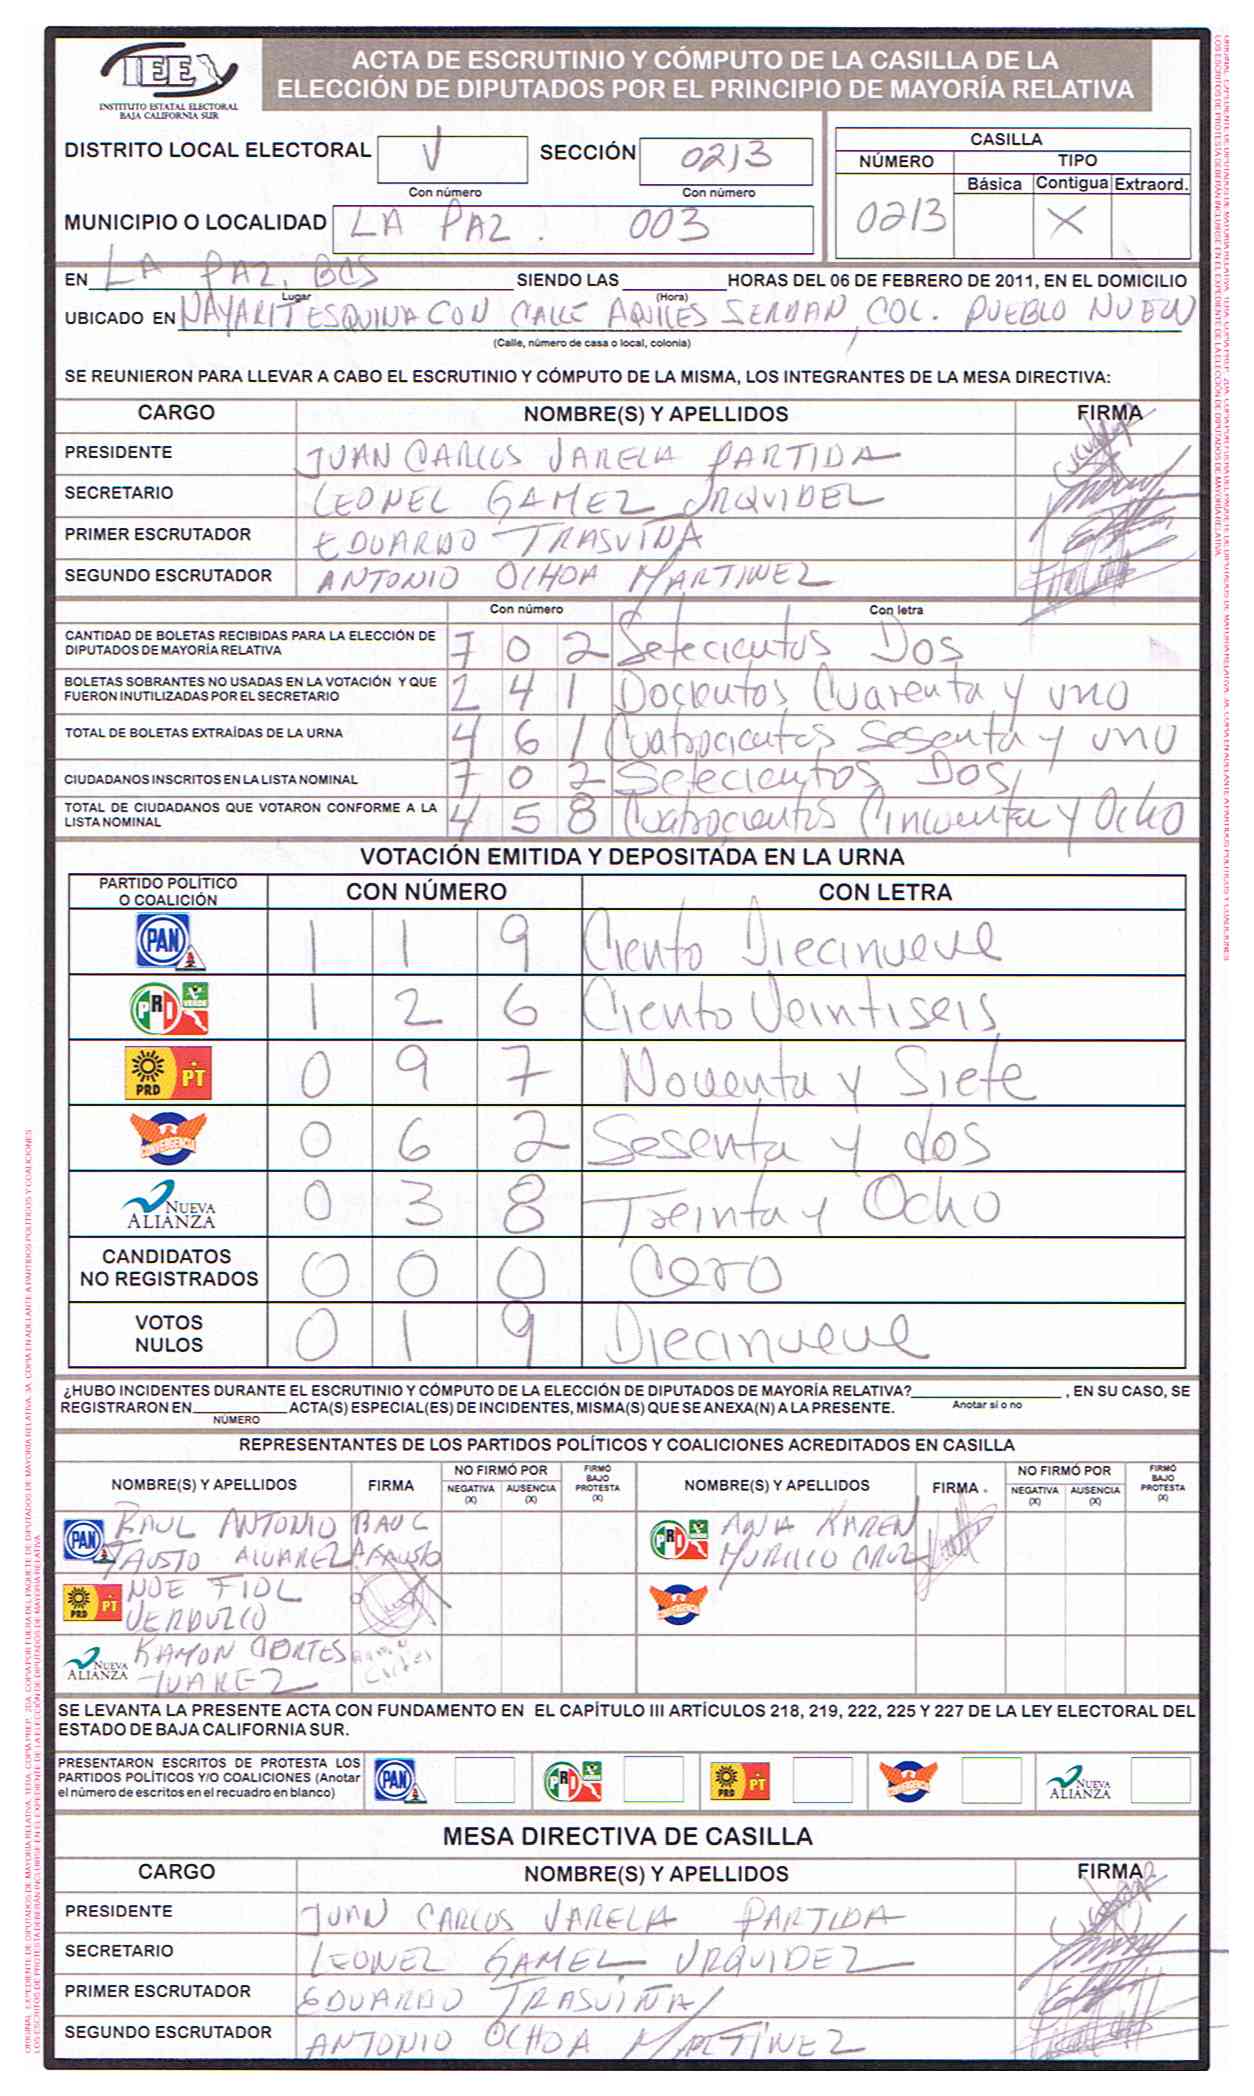 IEE
INSTITUTO ESTATAL ELECTORAL
BAJA CALIFORNIA SUR
ACTA DE ESCRUTINIO Y CÓMPUTO DE LA CASILLA DE LA
ELECCIÓN DE DIPUTADOS POR EL PRINCIPIO DE MAYORÍA RELATIVA
DISTRITO LOCAL ELECTORAL V SECCIÓN 0213
Con número Con número
MUNICIPIO O LOCALIDAD LA PAZ. 003
CASILLA
NÚMERO TIPO
Básica Contigua Extraord.
0213 X
EN LA PAZ, BCS SIENDO LAS HORAS DEL 06 DE FEBRERO DE 2011, EN EL DOMICILIO
Lugar (Hora)
UBICADO EN NAYARIT ESQUINA CON CALLE AQUILES SERDAN, COL. PUEBLO NUEVO
(Calle, número de casa o local, colonia)
SE REUNIERON PARA LLEVAR A CABO EL ESCRUTINIO Y CÓMPUTO DE LA MISMA, LOS INTEGRANTES DE LA MESA DIRECTIVA:
CARGO NOMBRE(S) Y APELLIDOS FIRMA
PRESIDENTE JUAN CARLOS VARELA PARTIDA
SECRETARIO LEONEL GAMEZ URQUIDEZ
PRIMER ESCRUTADOR EDUARDO TRASVIÑA
SEGUNDO ESCRUTADOR ANTONIO OCHOA MARTINEZ
Con número Con letra
CANTIDAD DE BOLETAS RECIBIDAS PARA LA ELECCIÓN DE
DIPUTADOS DE MAYORÍA RELATIVA 7 0 2 Setecientos Dos
BOLETAS SOBRANTES NO USADAS EN LA VOTACIÓN Y QUE
FUERON INUTILIZADAS POR EL SECRETARIO 2 4 1 Docientos Cuarenta y uno
TOTAL DE BOLETAS EXTRAÍDAS DE LA URNA 4 6 1 Cuatrocientos Sesenta y uno
CIUDADANOS INSCRITOS EN LA LISTA NOMINAL 7 0 2 Setecientos Dos
TOTAL DE CIUDADANOS QUE VOTARON CONFORME A LA
LISTA NOMINAL 4 5 8 Cuatrocientos Cincuenta y Ocho
VOTACIÓN EMITIDA Y DEPOSITADA EN LA URNA
PARTIDO POLÍTICO
O COALICIÓN CON NÚMERO CON LETRA
PAN 1 1 9 Ciento Diecinueve
PRI VERDE 1 2 6 Ciento Veintiseis
PRD PT 0 9 7 Noventa y Siete
CONVERGENCIA 0 6 2 Sesenta y dos
NUEVA ALIANZA 0 3 8 Treinta y Ocho
CANDIDATOS
NO REGISTRADOS 0 0 0 Cero
VOTOS
NULOS 0 1 9 Diecinueve
¿HUBO INCIDENTES DURANTE EL ESCRUTINIO Y CÓMPUTO DE LA ELECCIÓN DE DIPUTADOS DE MAYORÍA RELATIVA? , EN SU CASO, SE
REGISTRARON EN ACTA(S) ESPECIAL(ES) DE INCIDENTES, MISMA(S) QUE SE ANEXA(N) A LA PRESENTE. Anotar si o no
NÚMERO
REPRESENTANTES DE LOS PARTIDOS POLÍTICOS Y COALICIONES ACREDITADOS EN CASILLA
NOMBRE(S) Y APELLIDOS FIRMA NO FIRMÓ POR NEGATIVA (X) AUSENCIA (X) FIRMÓ BAJO PROTESTA (X) NOMBRE(S) Y APELLIDOS FIRMA NO FIRMÓ POR NEGATIVA (X) AUSENCIA (X) FIRMÓ BAJO PROTESTA (X)
PAN RAUL ANTONIO PRI ANA KAREN
FAUSTO ALVAREZ MURILLO CRUZ
PRD PT NOE FIOL CONVERGENCIA
VERDUZCO
NUEVA ALIANZA RAMON CORTES
JUAREZ
SE LEVANTA LA PRESENTE ACTA CON FUNDAMENTO EN EL CAPÍTULO III ARTÍCULOS 218, 219, 222, 225 Y 227 DE LA LEY ELECTORAL DEL
ESTADO DE BAJA CALIFORNIA SUR.
PRESENTARON ESCRITOS DE PROTESTA LOS
PARTIDOS POLÍTICOS Y/O COALICIONES (Anotar
el número de escritos en el recuadro en blanco) PAN PRI VERDE PRD PT CONVERGENCIA NUEVA ALIANZA
MESA DIRECTIVA DE CASILLA
CARGO NOMBRE(S) Y APELLIDOS FIRMA
PRESIDENTE JUAN CARLOS VARELA PARTIDA
SECRETARIO LEONEL GAMEZ URQUIDEZ
PRIMER ESCRUTADOR EDUARDO TRASVIÑA
SEGUNDO ESCRUTADOR ANTONIO OCHOA MARTÍNEZ